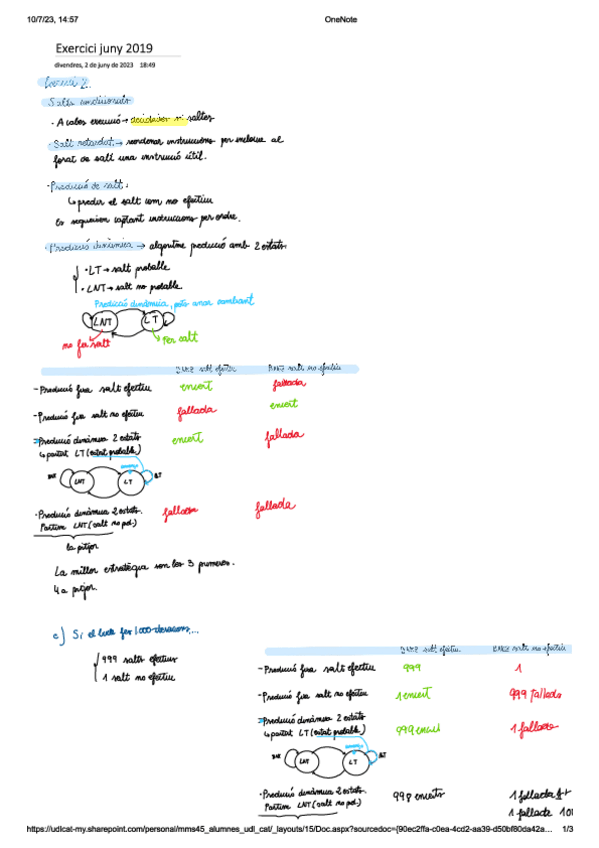 10/7/23, 14:57
OneNote
Exercici juny 2019
divendres, 2 de juny de 2023 18:49
Exercici 2.
Salts condicionats
· A cabes execució → decideixen si saltes
· Salt retardat, → reordenar instruccions per incloure al
forat de salt una instrucció útil.
· Predicció de salt:
↳ predir el salt com no efectiu
Es segueixen captant instruccions per ordre.
· Predicció dinàmica → algoritme predicció amb 2 estats
· LT → salt probable
· LNT → salt no probable.
Predicció dinàmica, pots anar cambiant
LNT LT
no fer salt
Fer salt
BNEZ salt efectiu BNEZ salt no efectiu
- Predicció fixa salt efectiu encert fallada
- Predicció fixa salt no efectiu fallada encert
- Predicció dinàmica 2 estats encert fallada
↳ partint LT (estat probable)
LNT LT
· Predicció dinàmica 2 estats. fallada fallada
Partim LNT (salt no pol.)
la pitjor
La millor estratègia son les 3 primeres.
4a pitjor.
c) Si el bucle fes 1000 iteracions,...
999 salts efectius
1 salt no efectiu
BNEZ salt efectiu BNEZ salt no efectiu
- Predicció fixa salt efectiu 999 1
- Predicció fixa salt no efectiu 1 encert 999 fallada
- Predicció dinàmica 2 estats 999 encert 1 fallada
↳ partint LT (estat probable)
LNT LT
· Predicció dinàmica 2 estats. 998 encerts 1 fallada
Partim LNT (salt no pol.) 1 fallada
https://udlcat-my.sharepoint.com/personal/mms45_alumnes_udl_cat/_layouts/15/Doc.aspx?sourcedoc={90ec2ffa-c0ea-4cd2-aa39-d50bf80da42a... 1/3